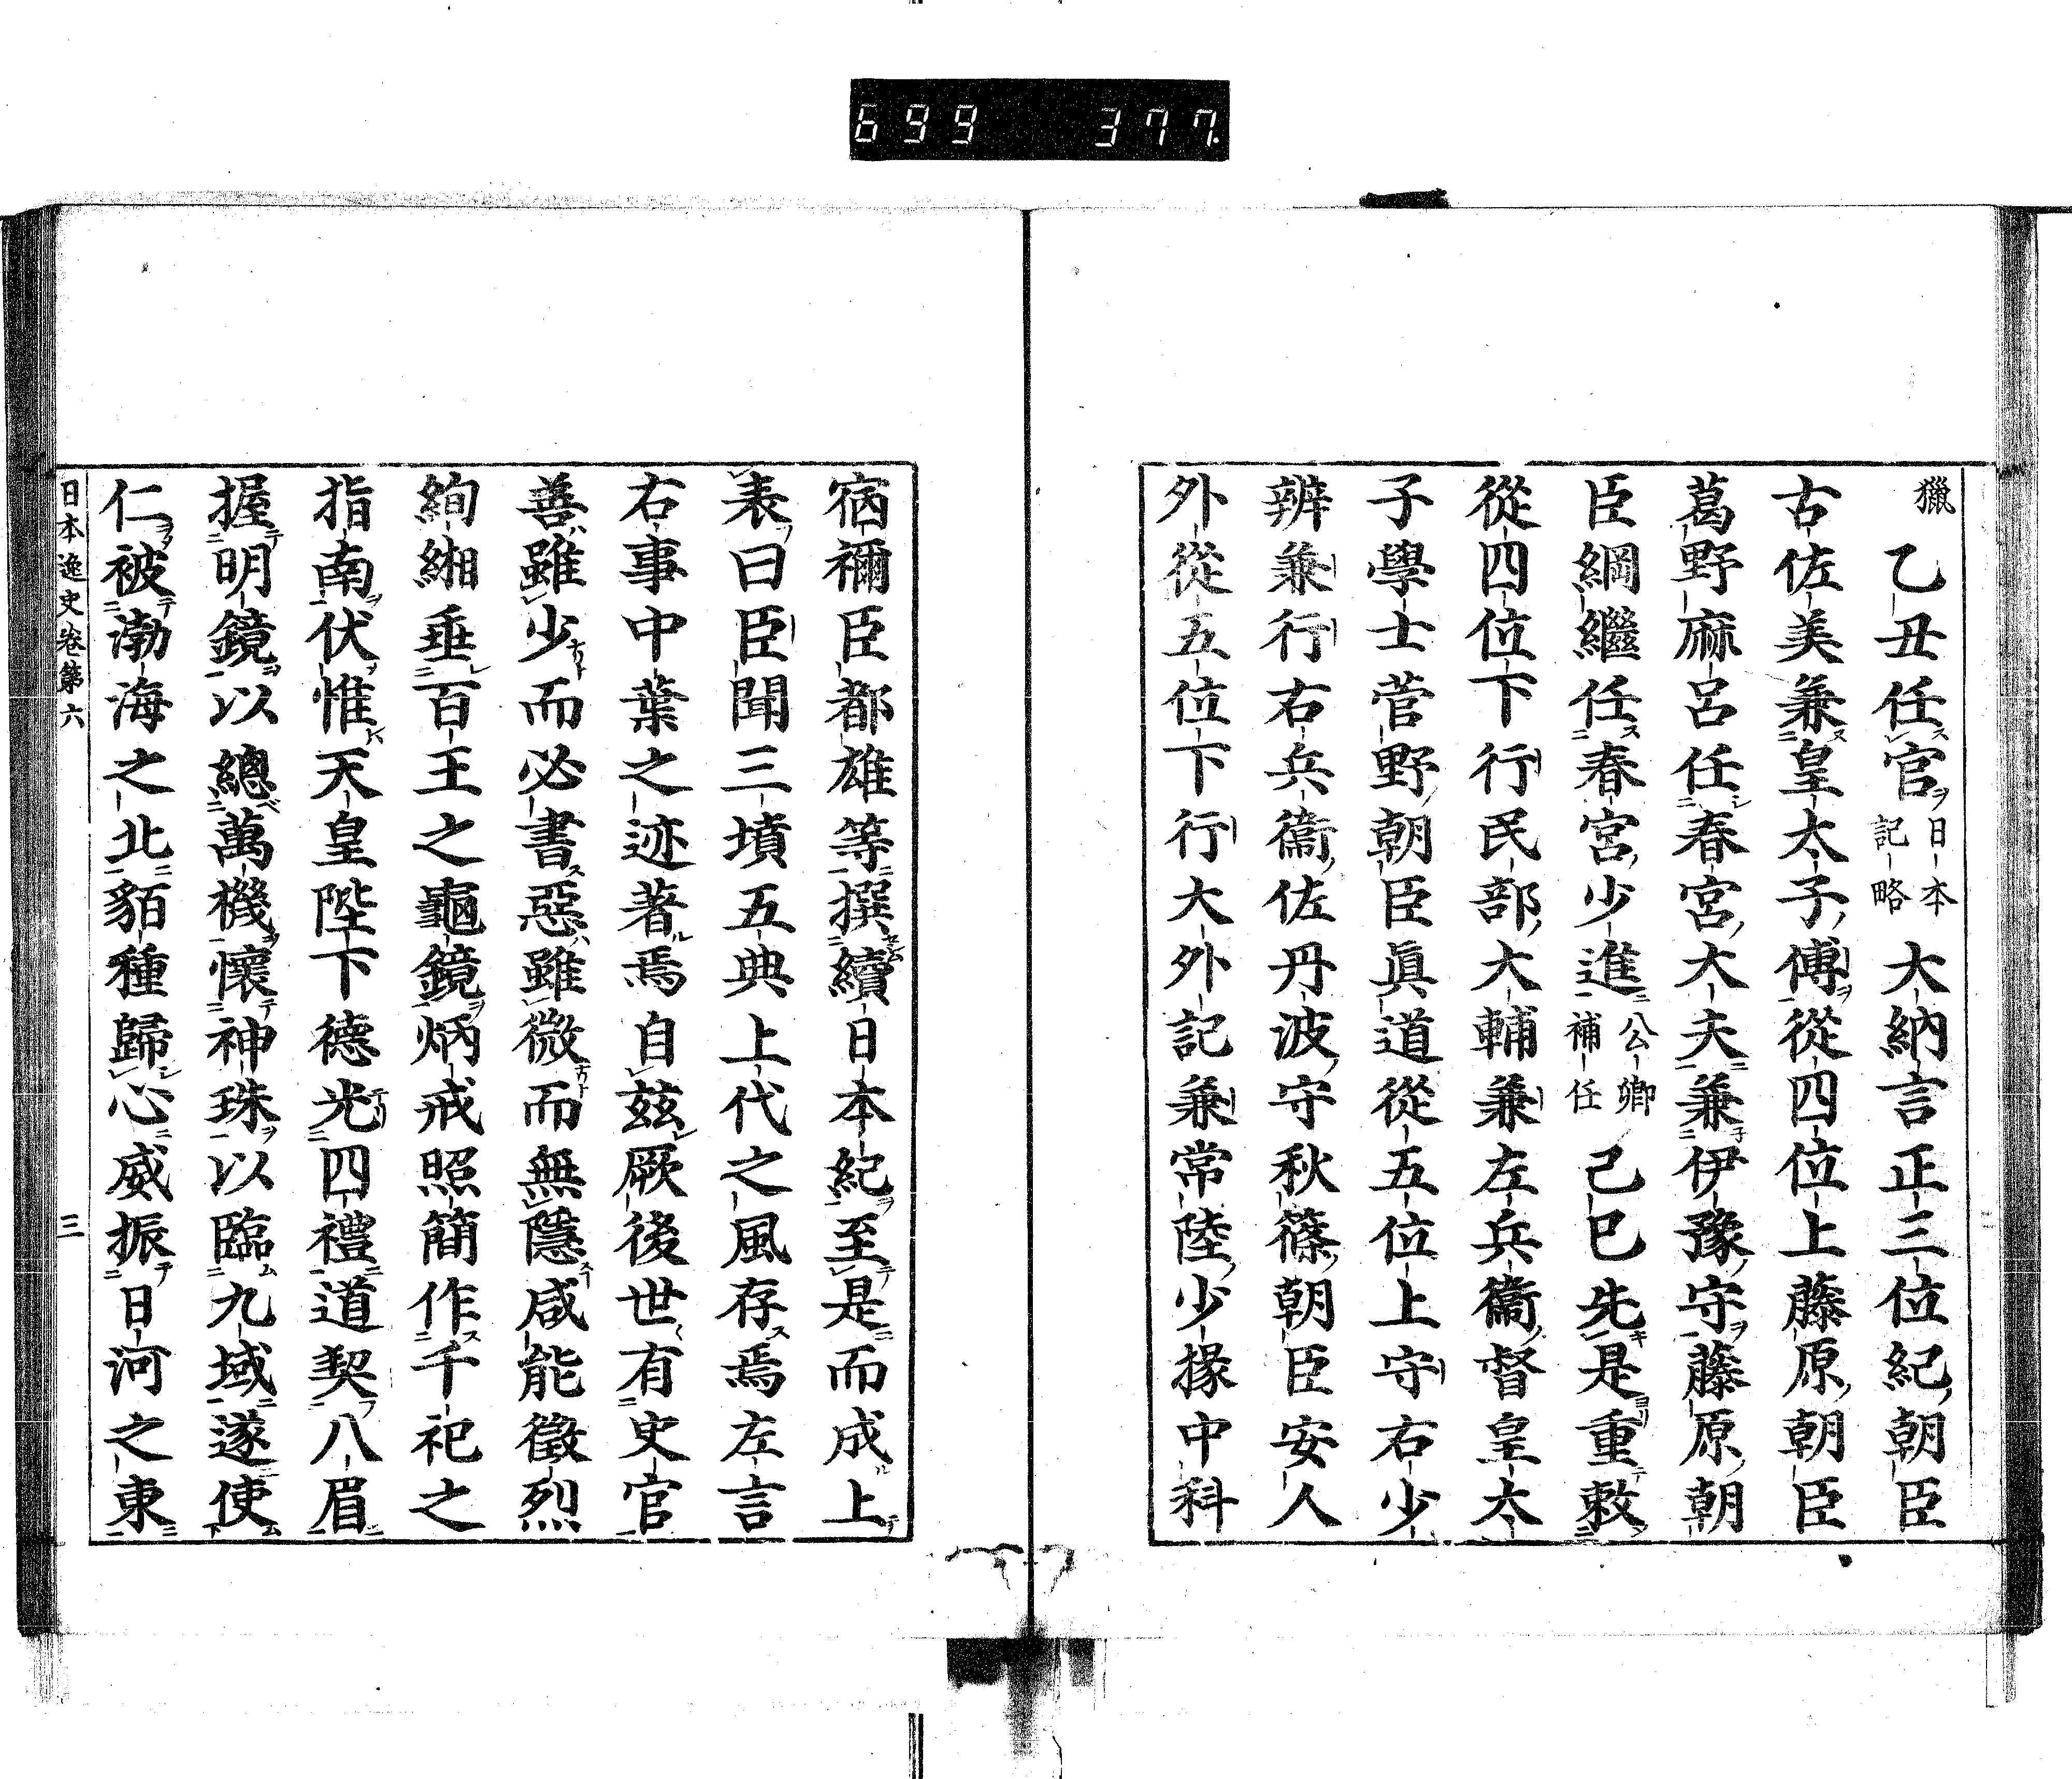 699 377.
獵
乙丑任官日本記略大納言正三位紀朝臣
古佐美兼皇太子傅從四位上藤原朝臣
葛野麻呂任春宮大夫兼伊豫守藤原朝
臣綱繼任春宮少進公卿補任己巳先是重敕
從四位下行民部大輔兼左兵衞督皇太
子學士菅野朝臣眞道從五位上守右少
辨兼行右兵衞佐丹波守秋篠朝臣安人
外從五位下行大外記兼常陸少掾中科
宿禰臣都雄等撰續日本紀至是而成上
表曰臣聞三墳五典上代之風存焉左言
右事中葉之迹著焉自茲厥後世有史官
善雖少而必書惡雖微而無隱咸能徵烈
絢緗垂百王之龜鏡炳戒照簡作千祀之
指南伏惟天皇陛下德光四禮道契八眉
握明鏡以總萬機懷神珠以臨九域遂使
仁被渤海之北貊種歸心威振日河之東
日本逸史卷第六 三